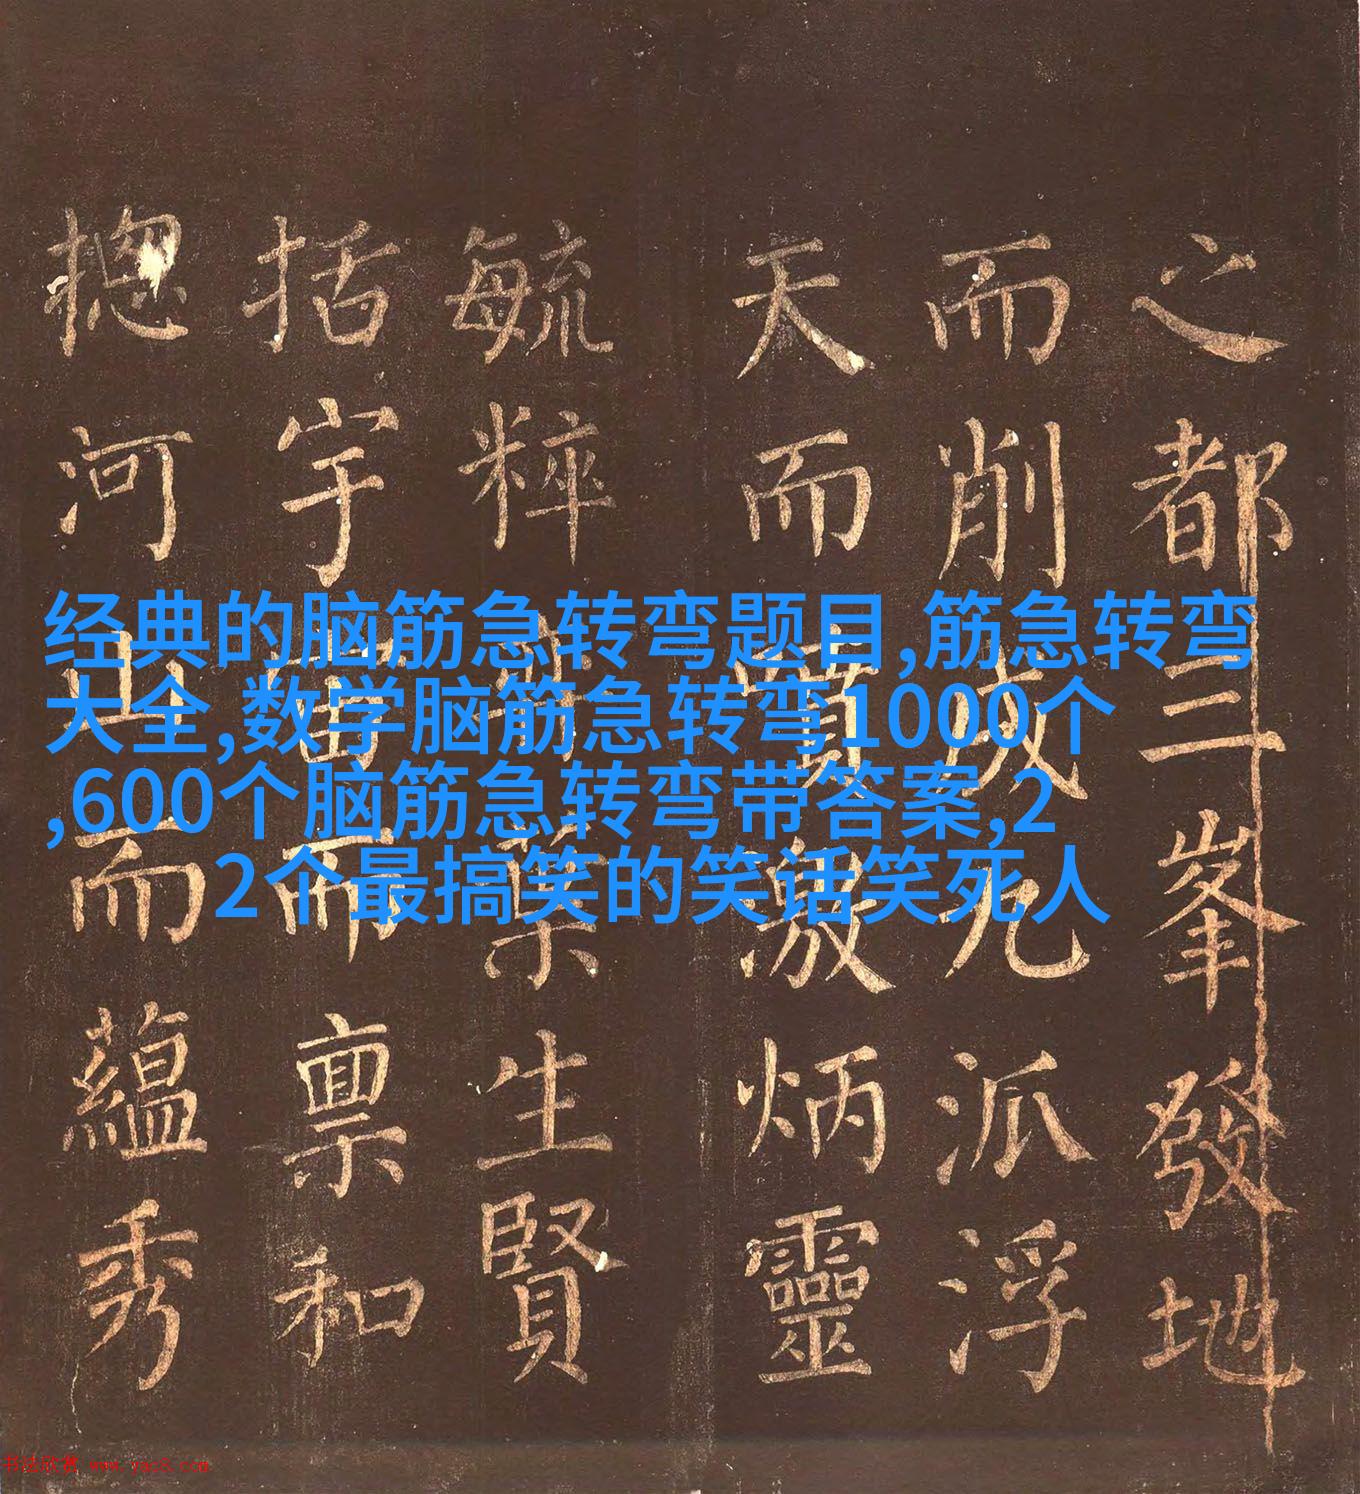 经典的脑筋急转弯题目,筋急转弯
大全,数学脑筋急转弯1000个
,600个脑筋急转弯带答案,2
2个最搞笑的笑话笑死人
之都三峯發地
而削成九派浮
天而噴激炳靈
毓粹葉生賢
括宇宙而稟和
摠河山而蘊秀
书法欣赏 www.yac8.com